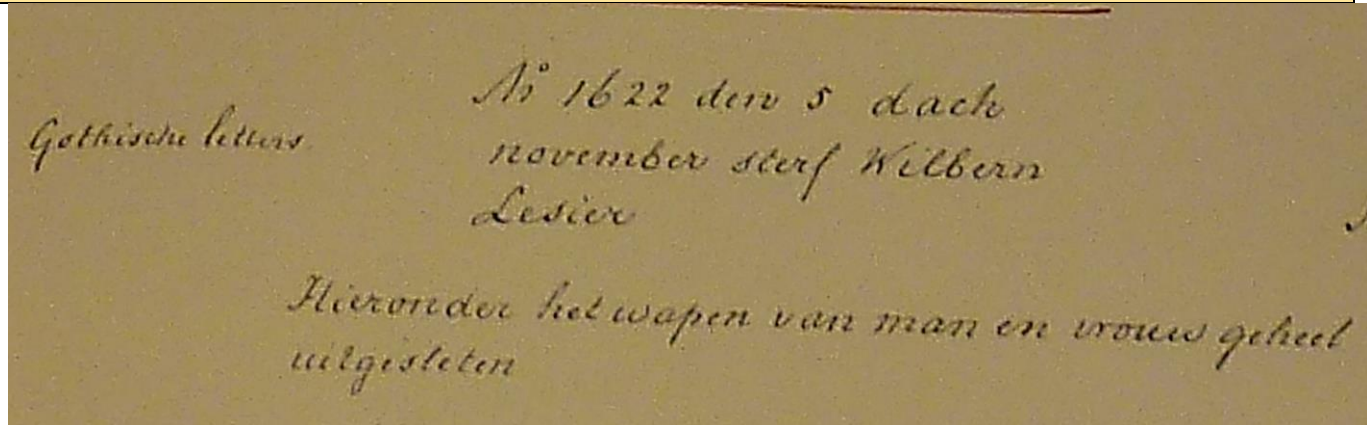 Gothische letters
Aº 1622 den 5 dach
november sterf Wilbern
Lesier
Hieronder het wapen van man en vrouw geheel
uitgesleten